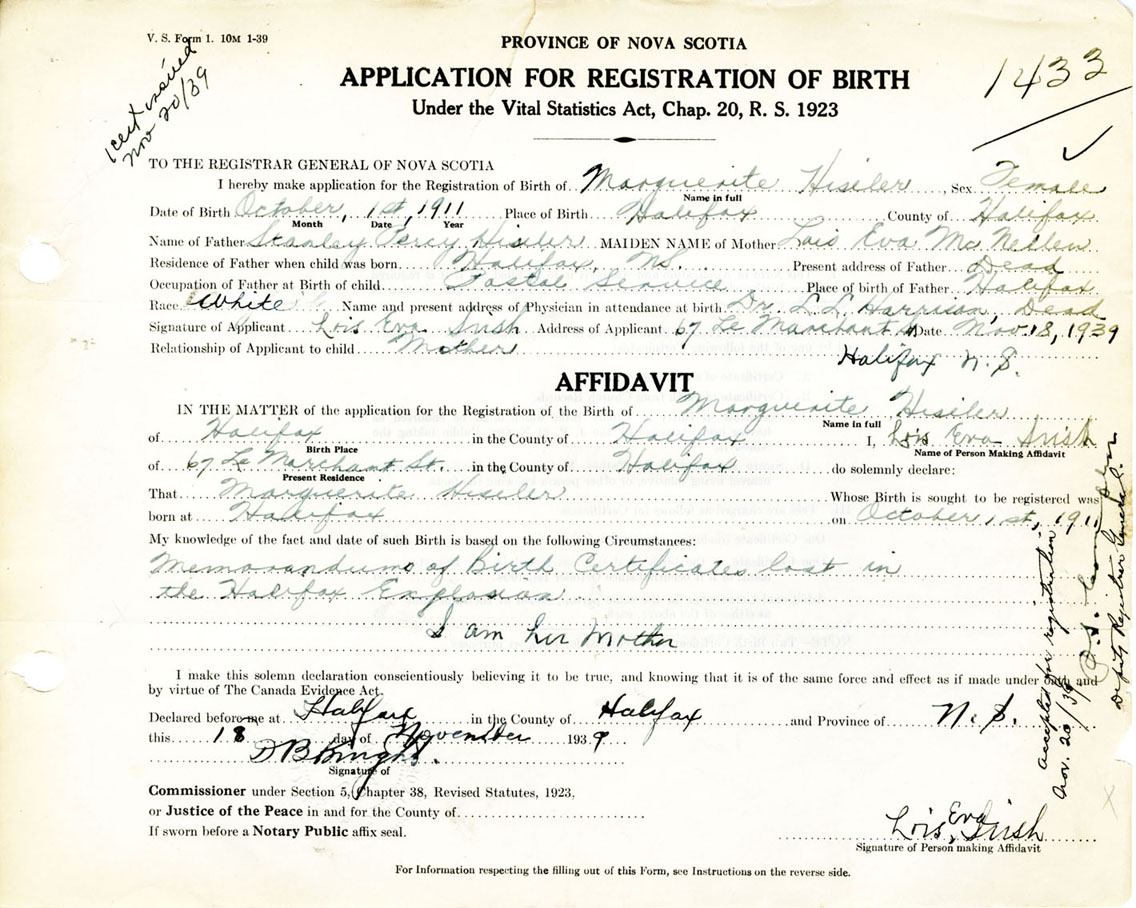 V. S. Form 1. 10M 1-39
1 cert issued
Nov 20/39
PROVINCE OF NOVA SCOTIA
APPLICATION FOR REGISTRATION OF BIRTH
Under the Vital Statistics Act, Chap. 20, R. S. 1923
1433
TO THE REGISTRAR GENERAL OF NOVA SCOTIA
I hereby make application for the Registration of Birth of Marguerite Hiseler, Sex Female
Name in full
Date of Birth October, 1st, 1911 Place of Birth Halifax County of Halifax
Month Date Year
Name of Father Stanley Percy Hiseler MAIDEN NAME of Mother Lois Eva Mc Nellen
Residence of Father when child was born Halifax, NS. Present address of Father Dead
Occupation of Father at Birth of child Postal Service Place of birth of Father Halifax
Race White Name and present address of Physician in attendance at birth Dr. L. L. Harrison, Dead
Signature of Applicant Lois Eva Irish Address of Applicant 67 Le Marchant St Date Nov. 18, 1939
Relationship of Applicant to child Mother Halifax N. S.
AFFIDAVIT
IN THE MATTER of the application for the Registration of the Birth of Marguerite Hiseler
Name in full
of Halifax in the County of Halifax I, Lois Eva Irish
Birth Place Name of Person Making Affidavit
of 67 Le Marchant St. in the County of Halifax do solemnly declare:
Present Residence
That Marguerite Hiseler Whose Birth is sought to be registered was
born at Halifax on October 1st, 1911
My knowledge of the fact and date of such Birth is based on the following Circumstances:
Memorandums of Birth Certificates lost in
the Halifax Explosion
I am her Mother
I make this solemn declaration conscientiously believing it to be true, and knowing that it is of the same force and effect as if made under oath and
by virtue of The Canada Evidence Act.
Declared before me at Halifax in the County of Halifax and Province of N. S.
this 18 day of November 1939
Signature of
Commissioner under Section 5, Chapter 38, Revised Statutes, 1923,
or Justice of the Peace in and for the County of
If sworn before a Notary Public affix seal.
Lois Eva Irish
Signature of Person making Affidavit
For Information respecting the filling out of this Form, see Instructions on the reverse side.
accepted for registration
Nov. 20/39
Deputy Registrar General